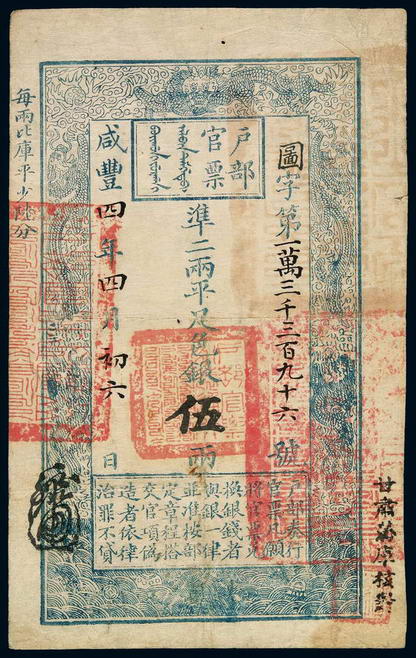 甘肅藩庫核對
圖字第一萬三千三百九十六號
戶部
官票
準二兩平足色銀伍兩
咸豐四年四月初六日
每兩比庫平少陸分
戶部奏行
官票凡願
將官票兌
換銀錢者
與銀一律
並準按部
定章程搭
交官項偽
造者依律
治罪不貸